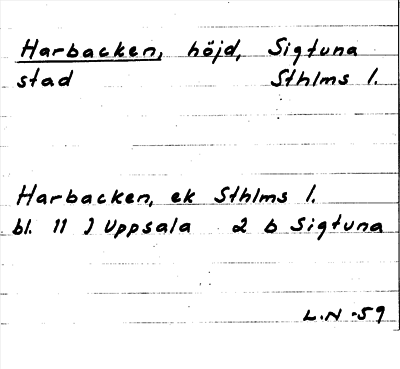 Harbacken, höjd, Sigtuna
stad Sthlms l.
Harbacken, ek Sthlms l.
bl. 11 J Uppsala 2 b Sigtuna
L.N -59